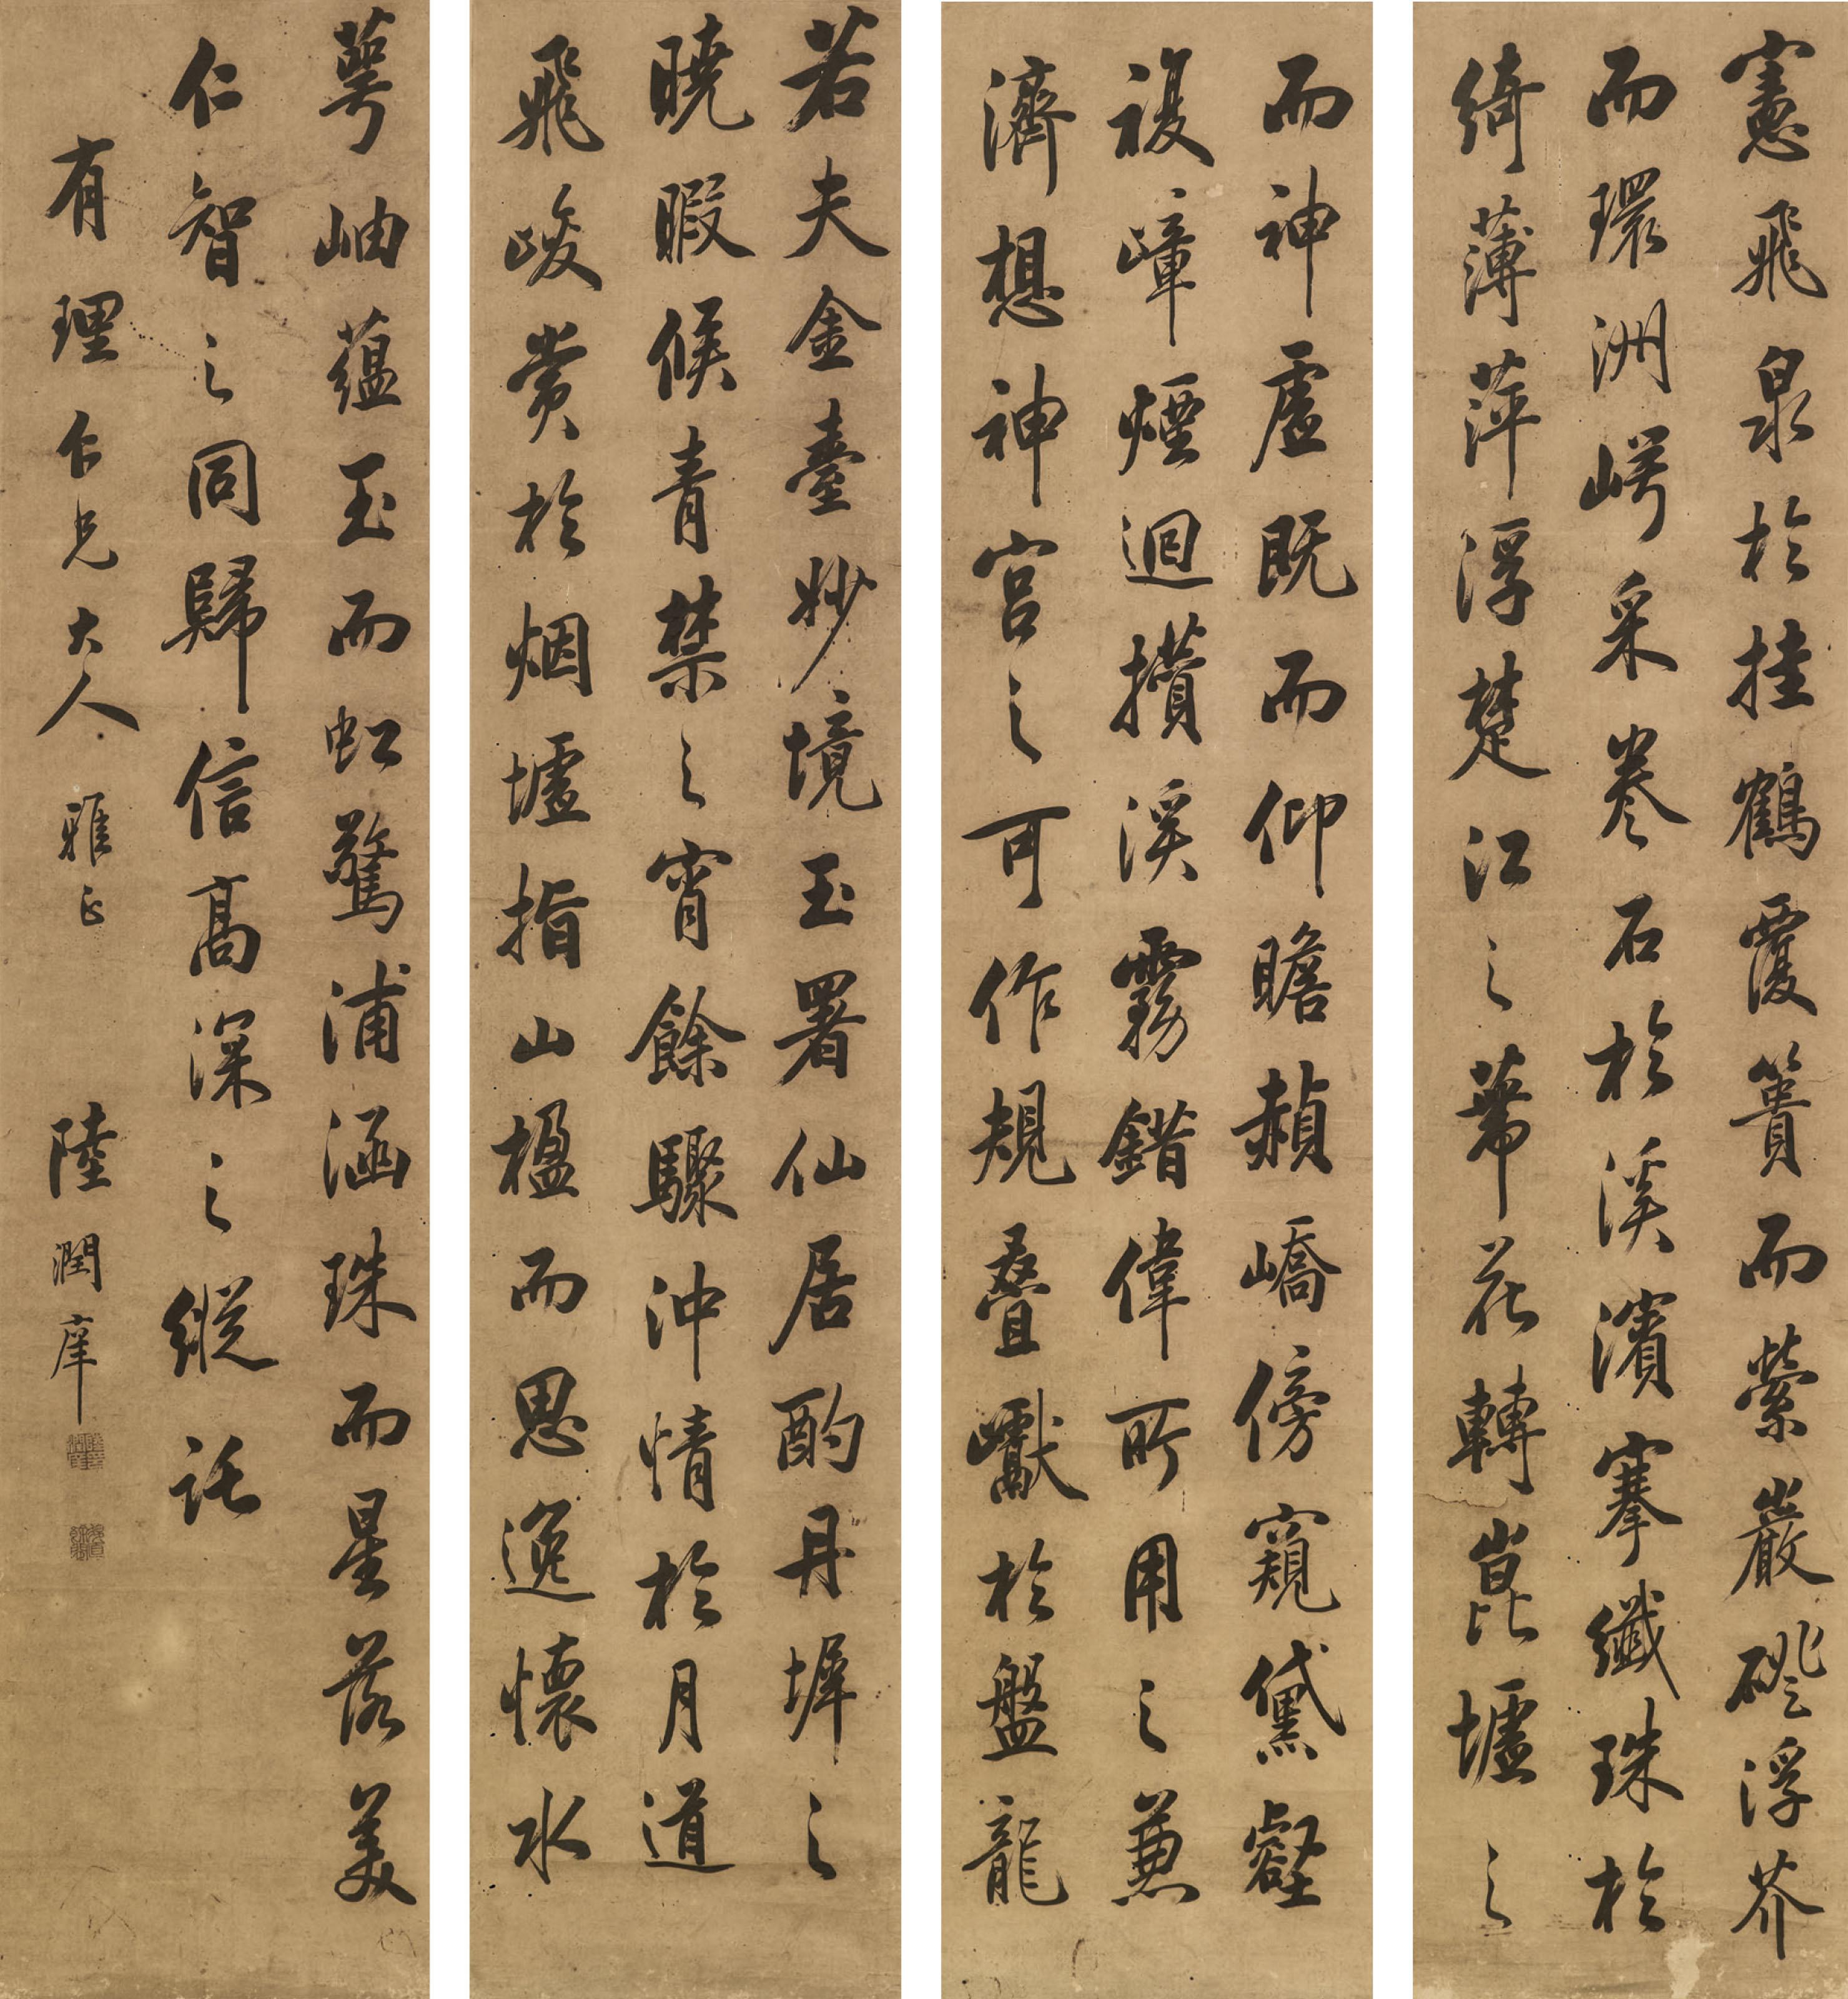 寋飛泉於挂鶴覆簣而縈巖磴浮芥
而環洲崿采卷石於溪濱搴纖珠於
綺薄萍浮楚江之蒂花轉崑墟之
萼岫蘊玉而虹驚浦涵珠而星落美
而神虛既而仰瞻赬嶠傍窺黛壑
複嶂煙迴攢溪霧錯偉所用之兼
濟想神宮之可作規疊巘於盤龍
若夫金臺妙境玉署仙居酌丹墀之
曉暇候青禁之宵餘驟沖情於月道
飛峻賞於烟墟指山楹而思逸懷水
仁智之同歸信高深之縱託
有理仁兄大人雅正
陸潤庠